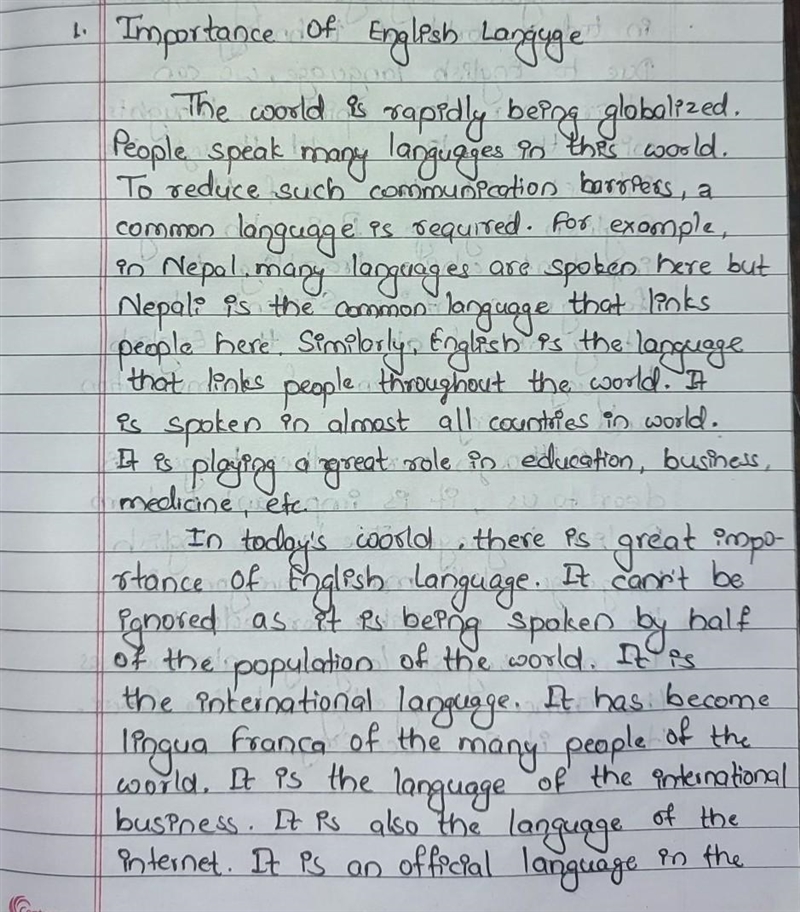 1. Importance Of English Langyge
The world is rapidly being globalized.
People speak many languages in this world.
To reduce such communication barriers, a
common language is required. For example,
in Nepal, many languages are spoken here but
Nepali is the common language that links
people here. Similarly, English is the language
that links people throughout the world. It
is spoken in almost all countries in world.
It is playing a great role in education, business,
medicine, etc.
In today's world, there is great impo-
rtance of English language. It cann't be
ignored as it is being spoken by half
of the population of the world. It is
the international language. It has become
lingua franca of the many people of the
world. It is the language of the international
business. It is also the language of the
internet. It is an official language in the